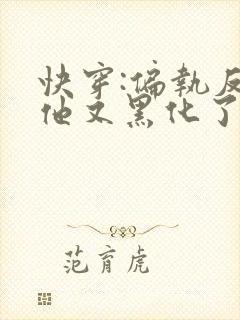 快穿:偏執反
他又黑化了
范育虎